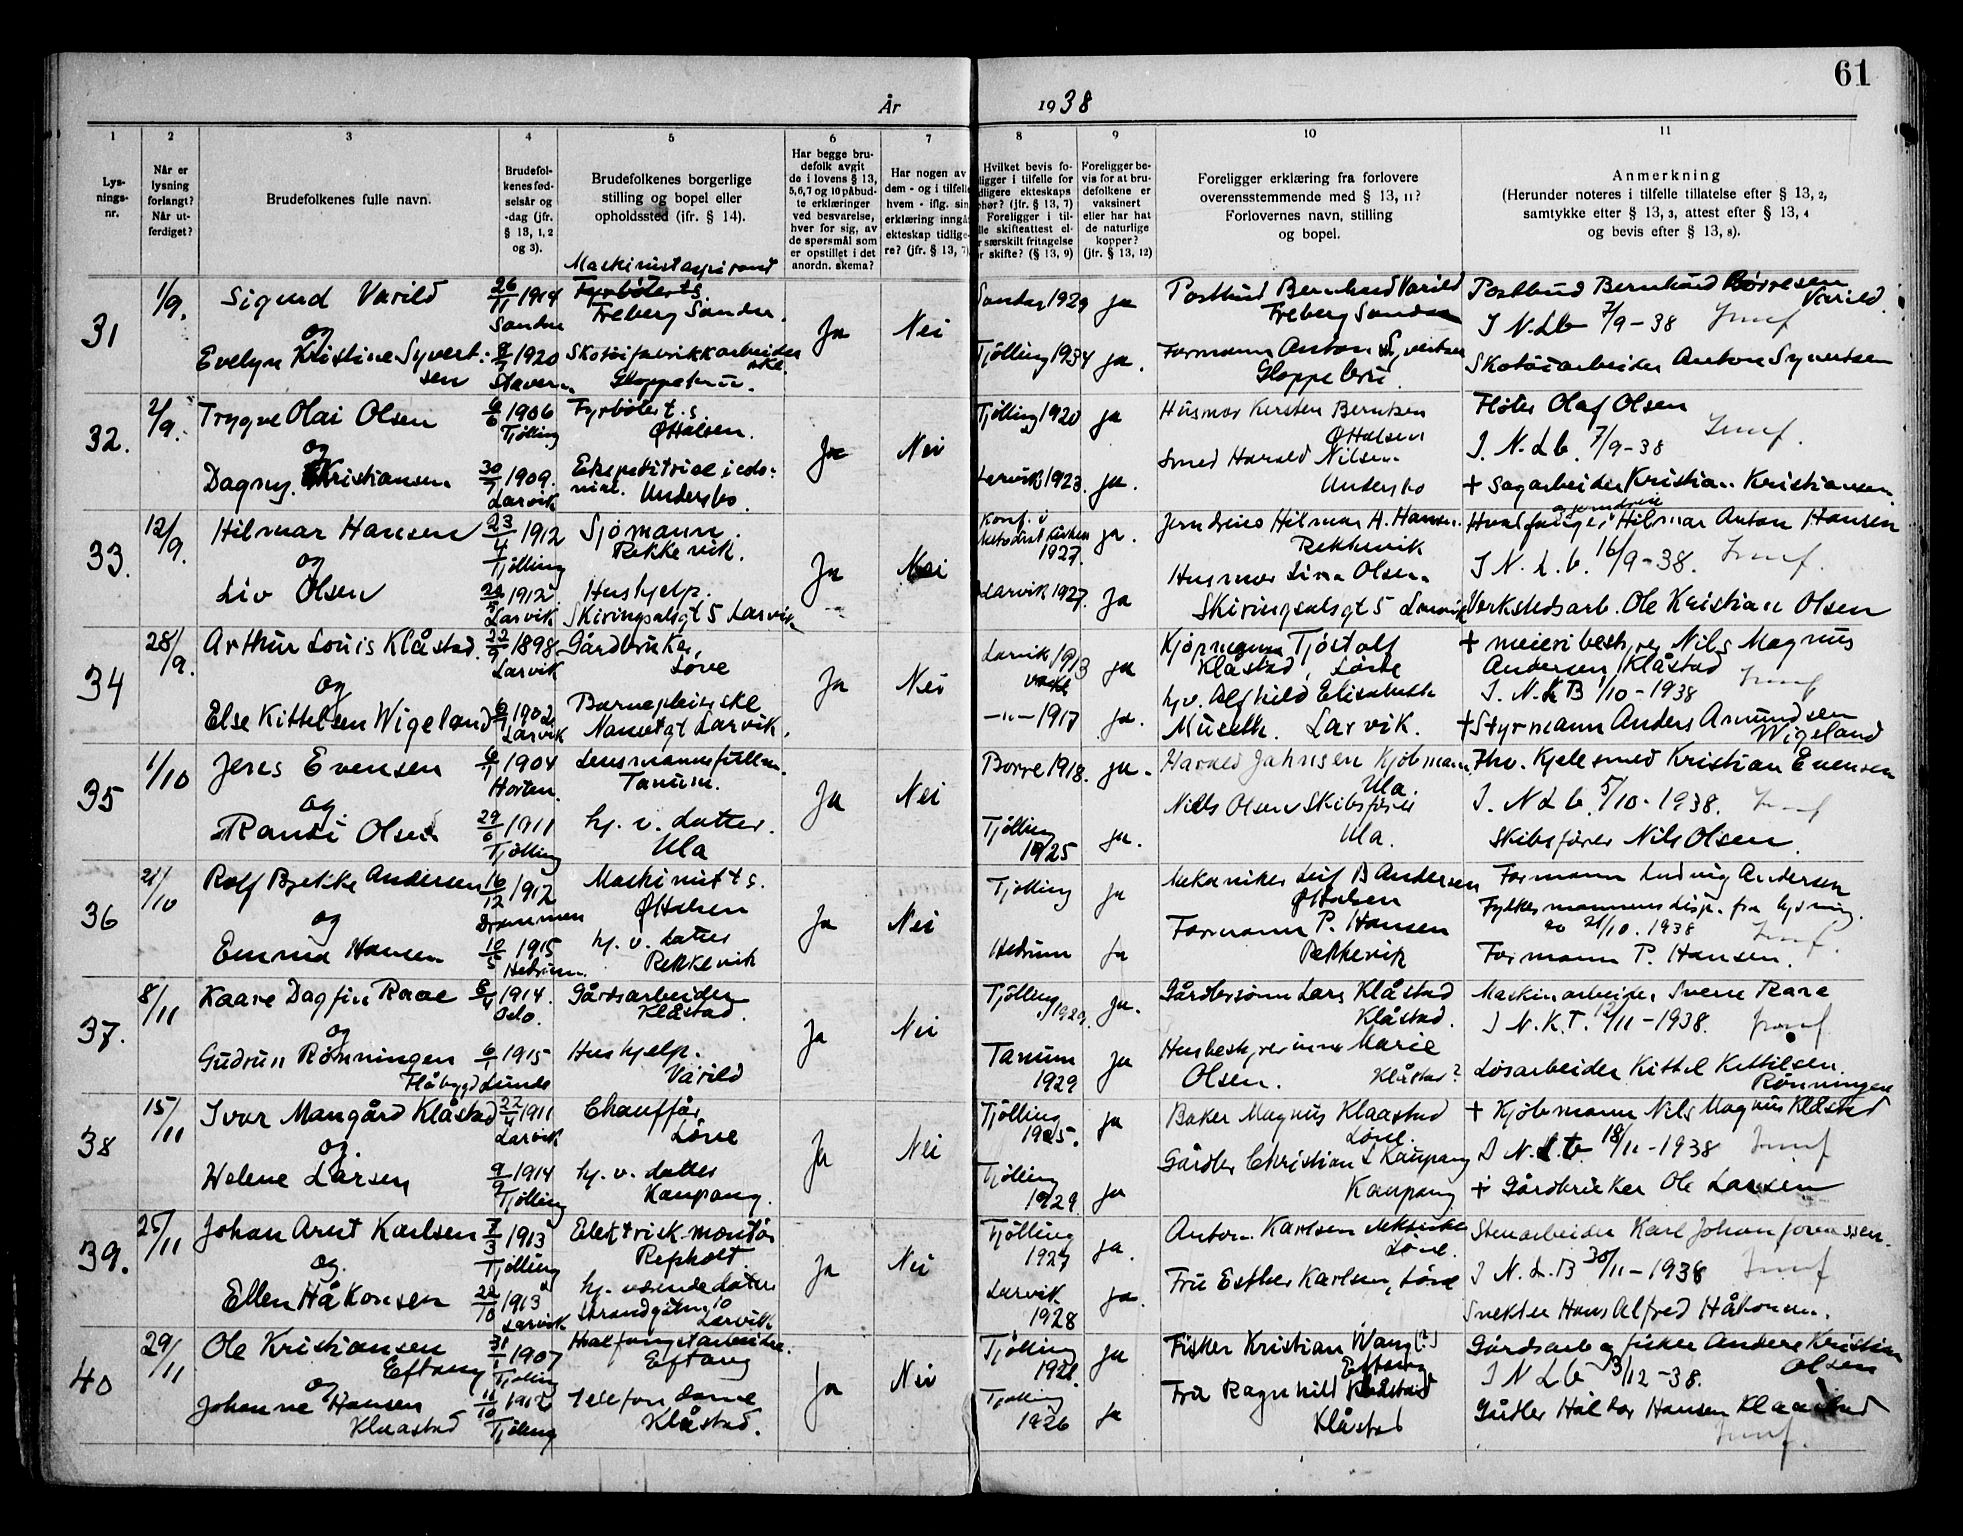 61
År 1938
1 2 3 4 5 6 7 8 9 10 11
Lys-
nings-
nr.
Når er
lysning
forlangt?
Når ut-
ferdiget?
Brudefolkenes fulle navn.
Brudefol-
kenes fød-
selsår og
-dag (jfr.
§ 13, 1, 2
og 3).
Brudefolkenes borgerlige
stilling og bopel eller
opholdssted (jfr. § 14).
Har begge bru-
defolk avgit
de i lovens § 13,
5, 6, 7 og 10 påbud-
te erklæringer
ved besvarelse,
hver for sig, av
de spørsmål som
er opstillet i det
anordn. skema?
Har nogen av
dem - og i tilfelle
hvem - iflg. sin
erklæring inngå
ekteskap tidlige-
re? (jfr. § 13, 7)
Hvilket bevis fo-
ligger i tilfelle for
dligere ekteskaps
phør? (jfr. § 13, 7)
Foreligger i til-
lle skifteattest el-
r særskilt fritagelse
r skifte? (§ 13, 9)
Foreligger be-
vis for at bru-
defolkene er
vaksinert
eller har hat
de naturlige
kopper?
(jfr. § 13, 12)
Foreligger erklæring fra forlovere
overensstemmende med § 13, 11?
Forlovernes navn, stilling
og bopel.
Anmerkning
(Herunder noteres i tilfelle tillatelse efter § 13, 2,
samtykke efter § 13, 3, attest efter § 13, 4
og bevis efter § 13, 8).
31 1/9. Sigurd Varild 26/11 1914 Maskinistaspirant
Fyrbøter ts
Sandar Freberg Sandar.
og Ja Nei
Evelyn Kristine Syvert- 1920 Skotøifabrikkarbeider
sen Stavern Gloppebruu.
Sandar 1929 ja Postbud Bernhard Varild Postbud Bernhard Børresen
Freberg Sandar Varild.
I N.Lb 7/9-38
Tjølling 1934 ja. Formann Anton Syvertsen Skotøiarbeider Anton Syvertsen
Gloppebru.
32. 2/9. Trygve Olai Olsen 6/6 1906 Fyrbøter t.s.
Tjølling Ø Halsen.
og Ja Nei
Dagny Kristiansen 30/7 1909. Ekspeditrise i colo-
Larvik nial. Undersbo
Tjølling 1920 ja Husmor Kirsten Berntsen Fløter Olaf Olsen
Ø Halsen I. N. Lb. 7/9-38
Larvik 1923. ja. Smed Harald Nilsen + Sagarbeider Kristian Kristiansen
Undersbo
33. 12/9. Hilmar Hansen 23/4 1912 Sjømann.
Tjølling Rekkevik.
og Ja Nei
Liv Olsen 1912 Hushjelp.
Larvik Skiringsalsgt 5 Larvik
Konf. i ja. Jerndreier Hilmar A. Hansen. Hvalfanger Hilmar Anton Hansen
Metodist kirken Rekkevik
1927. I N. L. b. 16/9-38.
Larvik 1927. ja Husmor Lina Olsen
Skiringsalsgt 5 Larvik Verkstedsarb. Ole Kristian Olsen
34 28/9. Arthur Louis Klåstad. 22/9 1898 Gårdbruker,
Larvik Løve
og Ja Nei
Else Kittelsen Wigeland 1902 Barnepleierske
Larvik Nansetgt Larvik.
Larvik 1913 ja Kjøpmann Tjøstolf + meieribestyrer Nils Magnus
Klåstad, Løve Andersen Klåstad
hv. Alfhild Elisabeth I. N. L B 1/10-1938
-"-1917 ja. Museth. Larvik. + Styrmann Anders Amundsen
Wigeland
35 1/10 Jens Evensen 6/1 1904 Lensmannsfullm.
Horten. Tanum.
og Ja Nei
Randi Olsen 29/6 1911 hj. v. datter.
Tjølling Ula
Borre 1918. ja. Harald Jahnsen Kjøbmann Fhv. Kjelesmed Kristian Evensen
Ula. I. N L b. 5/10-1938.
Tjølling Nils Olsen Skibsfører
1925 ja. Ula. Skibsfører Nils Olsen.
36 21/10 Rolf Bjekke Andersen 16/12 1912 Maskinist t s.
Drammen Ø Halsen
og Ja Nei
Emma Hansen 10/5 1915 hj. v. datter
Hedrum. Rekkevik
Tjølling ja Mekaniker Leif B Andersen Formann Ludvig Andersen
Ø Halsen Fylkesmannens disp. fra lysning.
av 21/10. 1938
Hedrum ja Formann P. Hansen
Rekkevik Formann P. Hansen.
37. 8/11 Kaare Dagfin Raae 8/4 1914. Gårdsarbeider
Oslo. Klåstad.
og Ja Nei
Gudrun Rønningen 6/1 1915 Hushjelp.
Flåbygd Lunde Varild
Tjølling 1929. ja. Gårdbr sønn Lars Klåstad Maskinarbeider Sverre Raae
Klåstad. I N. K. T. 12/11-1938.
Tanum ja Husbestyrerinne Marie
1929 Olsen. Klåstad? Løsarbeider Kittel Kittilsen
Rønningen
38 15/11 Ivar Mangård Klåstad 22/4 1911 Chauffør,
Larvik Løve
og. Ja Nei
Helene Larsen 9/9 1914 hj. v. datter
Tjølling Kaupang.
Tjølling ja Baker Magnus Klaastad + Kjøbmann Nils Magnus Klåstad
1925. Løve. I N. L b 18/11-1938
Tjølling Gårdbr Christian L Kaupang
1929. ja Kaupang + Gårdbruker Ole Larsen
39. 25/11 Johan Arnt Karlsen 7/3 1913 Elektrisk montør
Tjølling Refsholt.
og Ja Nei
Ellen Håkonsen 22/10 1913 hj. værende datter
Larvik Strandgaten 10 Larvik
Tjølling ja. Anton Karlsen Løve. Stenarbeider Karl Johan Jonassen.
1927 I N. L. B 30/11-1938
Larvik ja. Fru Esther Karlsen, Løve
1928 Snekker Hans Alfred Håkonsen.
40 29/11 Ole Kristiansen 31/1 1907 Hvalfangstarbeider.
Eftang Tjølling Eftang
og Ja Nei
Johanne Hansen 11/10 1912 Telefondame
Klaastad Tjølling Klåstad.
Tjølling ja Fisker Kristian Wang (?) Gårdsarb og fisker Anders Kristian
1921. Eftang Olsen
I N L b 3/12-38.
Tjølling ja Fru Ragnhild Klåstad
1926 Klåstad Gårdbr Halvor Hansen Klaastad